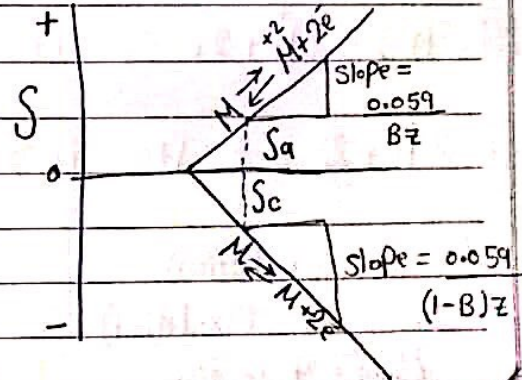 +
M ⇌ M+2 + 2e
Slope =
0.059
BZ
S
Sa
0
Sc
M ⇌ M+2e
Slope = 0.059
(1-B)Z
-